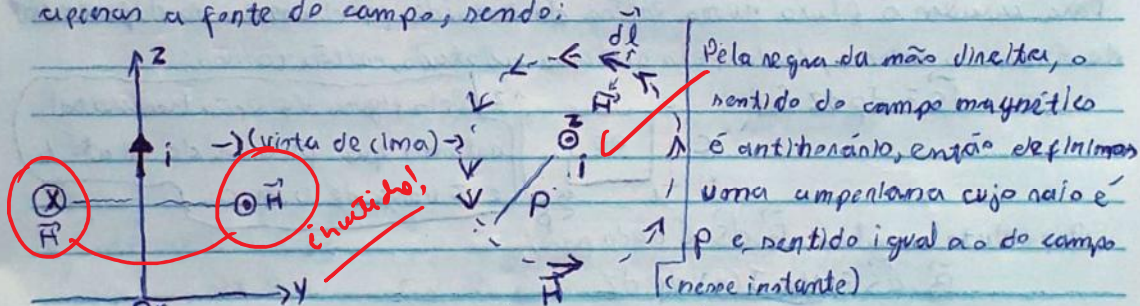 apenas a fonte do campo, sendo:
z
i
→(vista de cima)→
H
H
invertido!
y
dl
H
z
i
ρ
H
Pela regra da mão direita, o
sentido do campo magnético
é antihorário, então definimos
uma amperiana cujo raio é
ρ e sentido igual ao do campo
(nesse instante)